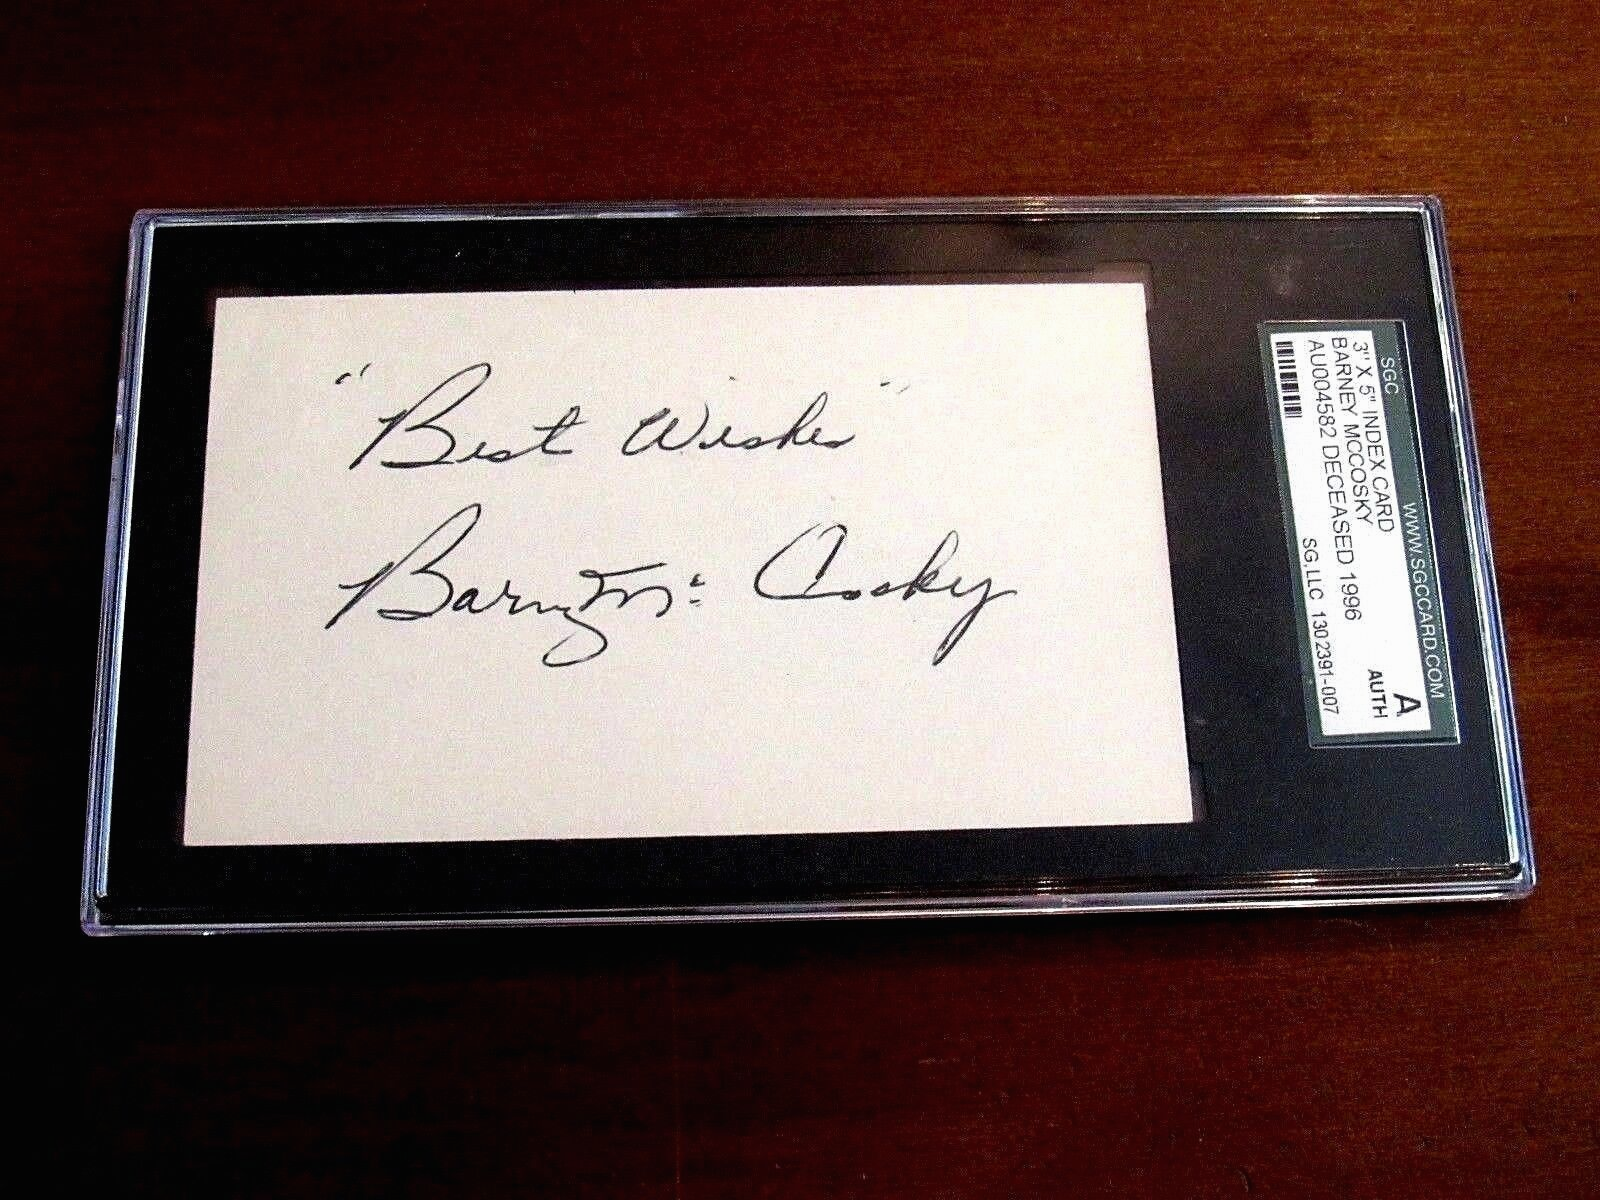 "Best Wishes"
Barney Mc Cosky
SGC WWW.SGCCARD.COM
3" X 5" INDEX CARD
BARNEY MCCOSKY
AU004582 DECEASED 1996
SG,LLC 1302391-007
A
AUTH